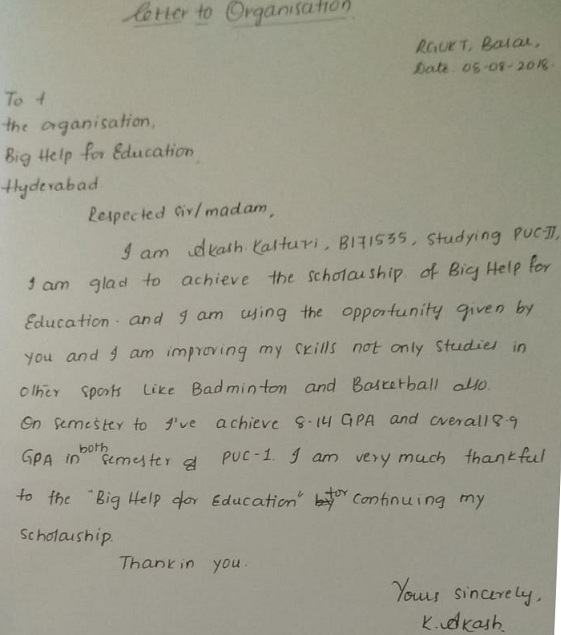 Letter to Organisation
RGUKT, Basar,
Date. 05-08-2018.
To
the organisation,
Big Help for Education
Hyderabad
Respected sir/madam,
I am Akash Kasturi, B171535, Studying PUC-II,
I am glad to achieve the scholarship of Big Help for
Education. and I am using the opportunity given by
you and I am improving my skills not only studies in
other sports like Badminton and Basketball also.
On semester to I've achieve 8.14 GPA and overall 8.9
GPA in both semester of PUC-1. I am very much thankful
to the "Big Help for Education" for continuing my
scholarship.
Thankin you.
Yours sincerely,
K. Akash.